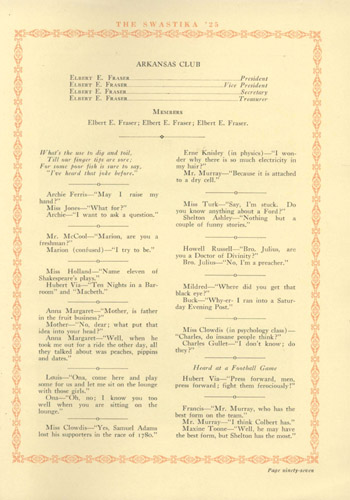 THE SWASTIKA '25
ARKANSAS CLUB
Elbert E. Fraser President
Elbert E. Fraser Vice President
Elbert E. Fraser Secretary
Elbert E. Fraser Treasurer
Members
Elbert E. Fraser; Elbert E. Fraser; Elbert E. Fraser.
What's the use to dig and toil,
Till our finger tips are sore;
For some poor fish is sure to say,
"I've heard that joke before."
Archie Ferris—"May I raise my
hand?"
Miss Jones—"What for?"
Archie—"I want to ask a question."
Mr. McCool—"Marion, are you a
freshman?"
Marion (confused)—"I try to be."
Miss Holland—"Name eleven of
Shakespeare's plays."
Hubert Via—"Ten Nights in a Bar-
room" and "Macbeth."
Anna Margaret—"Mother, is father
in the fruit business?"
Mother—"No, dear; what put that
idea into your head?"
Anna Margaret—"Well, when he
took me out for a ride the other day, all
they talked about was peaches, pippins
and dates."
Louis—"Ona, come here and play
some for us and let me sit on the lounge
with those girls."
Ona—"Oh, no; I know you too
well when you are sitting on the
lounge."
Miss Clowdis—"Yes, Samuel Adams
lost his supporters in the race of 1780."
Erne Knisley (in physics)—"I won-
der why there is so much electricity in
my hair?"
Mr. Murray—"Because it is attached
to a dry cell."
Miss Turk—"Say, I'm stuck. Do
you know anything about a Ford?"
Shelton Ashley—"Nothing but a
couple of funny stories."
Howell Russell—"Bro. Julius, are
you a Doctor of Divinity?"
Bro. Julius—"No, I'm a preacher."
Mildred—"Where did you get that
black eye?"
Buck—"Why-er- I ran into a Satur-
day Evening Post."
Miss Clowdis (in psychology class)—
"Charles, do insane people think?"
Charles Gullet—"I don't know; do
they?"
Heard at a Football Game
Hubert Via—"Press forward, men,
press forward; fight them ferociously!"
Francis—"Mr. Murray, who has the
best form on the team."
Mr. Murray—"I think Colbert has."
Maxine Tonne—"Well, he may have
the best form, but Shelton has the most."
Page ninety-seven